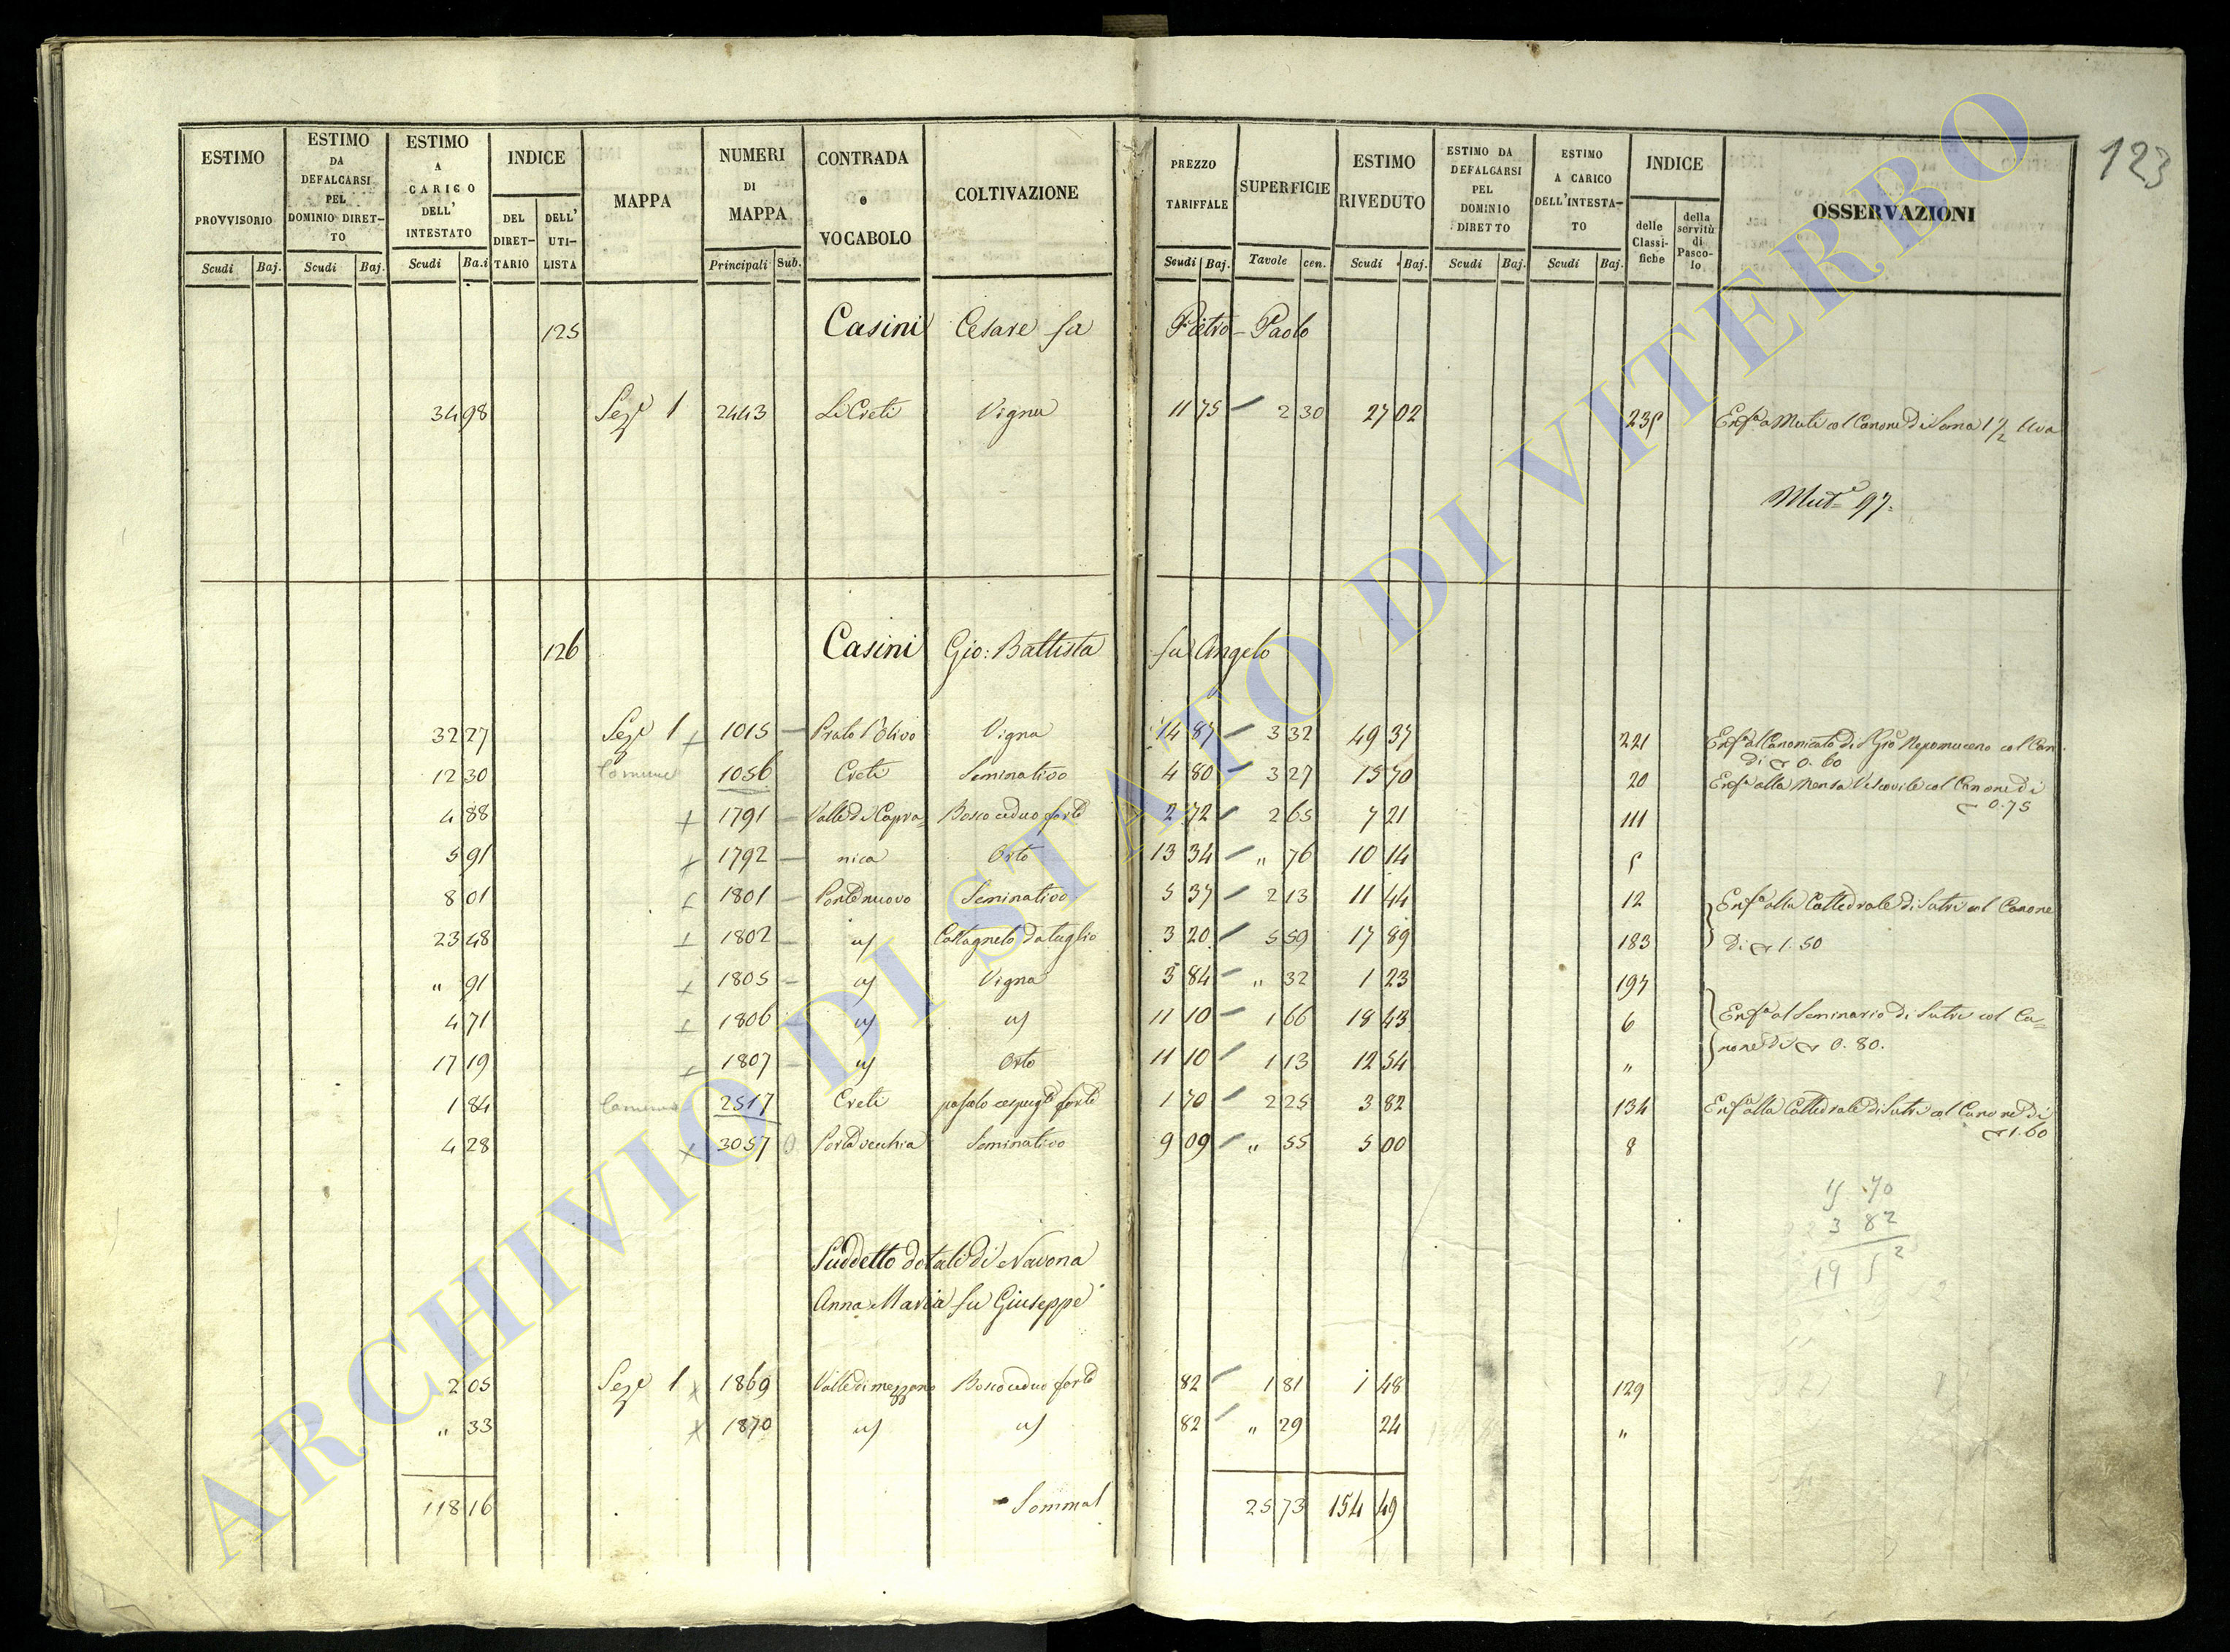 123
ESTIMO PROVVISORIO | ESTIMO DA DEFALCARSI PEL DOMINIO DIRET-TO | ESTIMO A CARICO DELL' INTESTATO | INDICE | MAPPA | NUMERI DI MAPPA | CONTRADA o VOCABOLO | COLTIVAZIONE | PREZZO TARIFFALE | SUPERFICIE | ESTIMO RIVEDUTO | ESTIMO DA DEFALCARSI PEL DOMINIO DIRETTO | ESTIMO A CARICO DELL'INTESTA-TO | INDICE | OSSERVAZIONI
Scudi Baj. | Scudi Baj. | Scudi Ba.i | DEL DIRET-TARIO | DELL' UTI-LISTA | Principali Sub. | Scudi Baj. | Tavole cen. | Scudi Baj. | Scudi Baj. | Scudi Baj. | delle Classi-fiche | della servitù di Pasco-lo
125 Casini Cesare fu Pietro-Paolo
34 98 Sez.e 1 2443 Li Creti Vigna 11 75 2 30 27 02 Enf.a a Muti col Canone di Soma 1 1/2 Uva
Mut.e 97.
126 Casini Gio: Battista fu Angelo
32 27 Sez.e 1 1015 Prato l'Olivo Vigna 14 87 3 32 49 37 221 Enf.a al Canonicato di S. Gio Nepomuceno col Can.
di 0.60
12 30 Comune 1056 Creti Seminativo 4 80 3 27 15 70 20 Enf.a alla Mensa Vescovile col Canone di
0.75
4 88 1791 Valle di Capra- Bosco ceduo forte 2 72 2 65 7 21 111
5 91 1792 nica Orto 13 34 " 76 10 14
8 01 1801 Ponte nuovo Seminativo 5 37 2 13 11 44 12 Enf.a alla Cattedrale di Sutri col Canone
23 48 1802 Castagneto da taglio 3 20 5 59 17 89 183 di 1.50
" 91 1805 Vigna 3 84 " 32 1 23 197
4 71 1806 11 10 1 66 18 43 6 Enf.a al Seminario di Sutri col Ca=
17 19 1807 Orto 11 10 1 13 12 54 " none di 0.80.
1 84 Comune 2517 Creti pascolo cespugl.o forte 1 70 2 25 3 82 134 Enf.a alla Cattedrale di Sutri col Canone di
1.60
4 28 3057 Porta vecchia Seminativo 9 09 " 55 5 00 8
70
3 82
19 52
Suddetto dotali di Navona
Anna Maria fu Giuseppe
2 05 Sez.e 1 1869 Valle di mezzano Bosco ceduo forte 82 1 81 1 48 129
" 33 1870 82 " 29 24 "
118 16 Sommat 25 73 154 49
ARCHIVIO DI STATO DI VITERBO